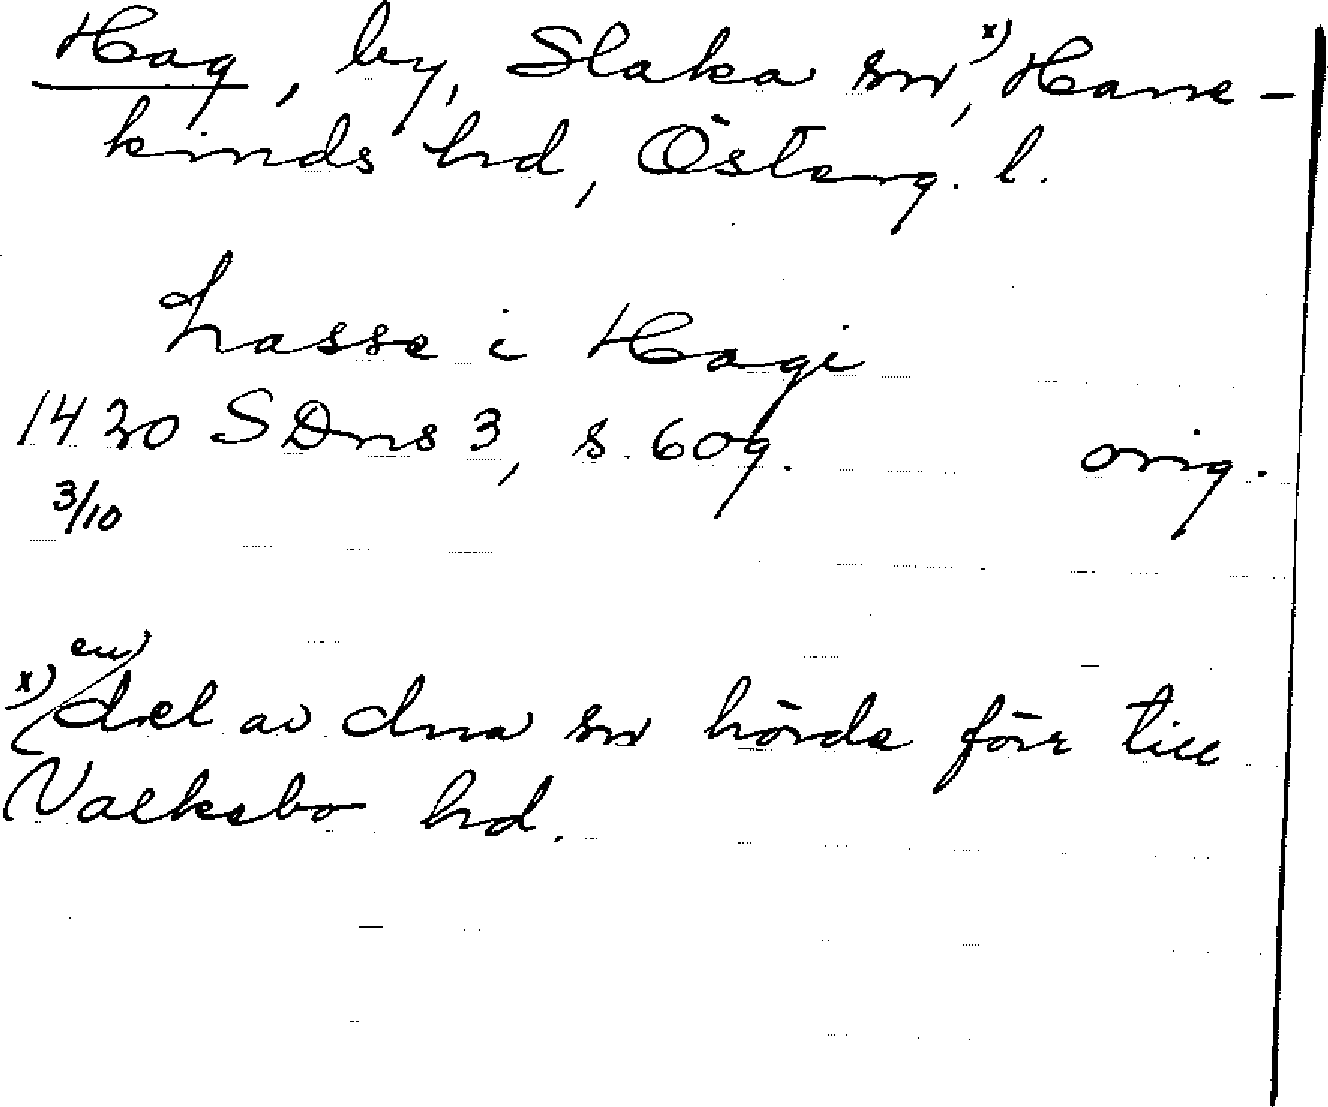 Hag, by, Slaka sn,x) Hane-
kinds hd, Österg. l.
Lasse i Hagi
1420 SDns 3, s. 609. orig.
3/10
x) en
del av dna sn hörde förr till
Valkebo hd.